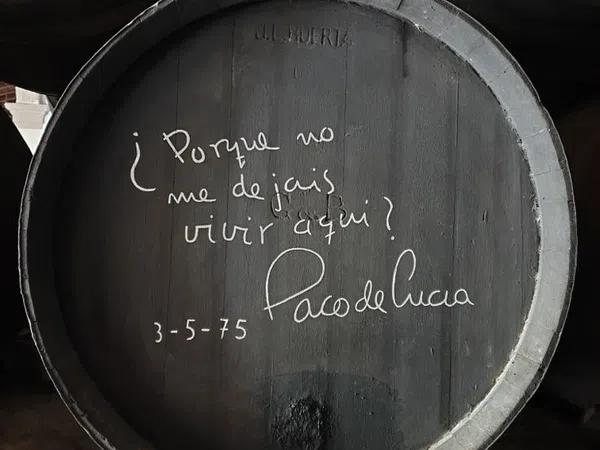 J.L. HUERTA
¿Porque no
me dejais
vivir aqui?
Paco de Lucia
3-5-75